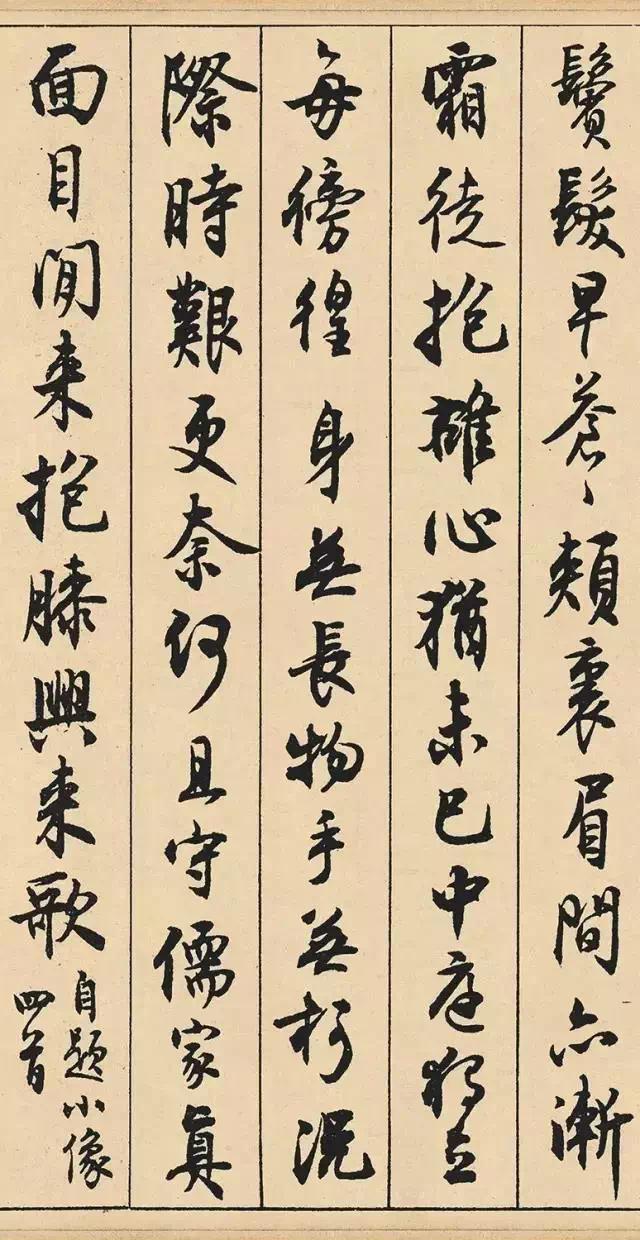 鬢髮早蒼〻頰裏眉間亦漸
霜徒抱雄心猶未已中庭獨立
每徬徨 身無長物手無柯況
際時艱更奈何且守儒家真
面目閒来抱膝興来歌
自題小像
四首